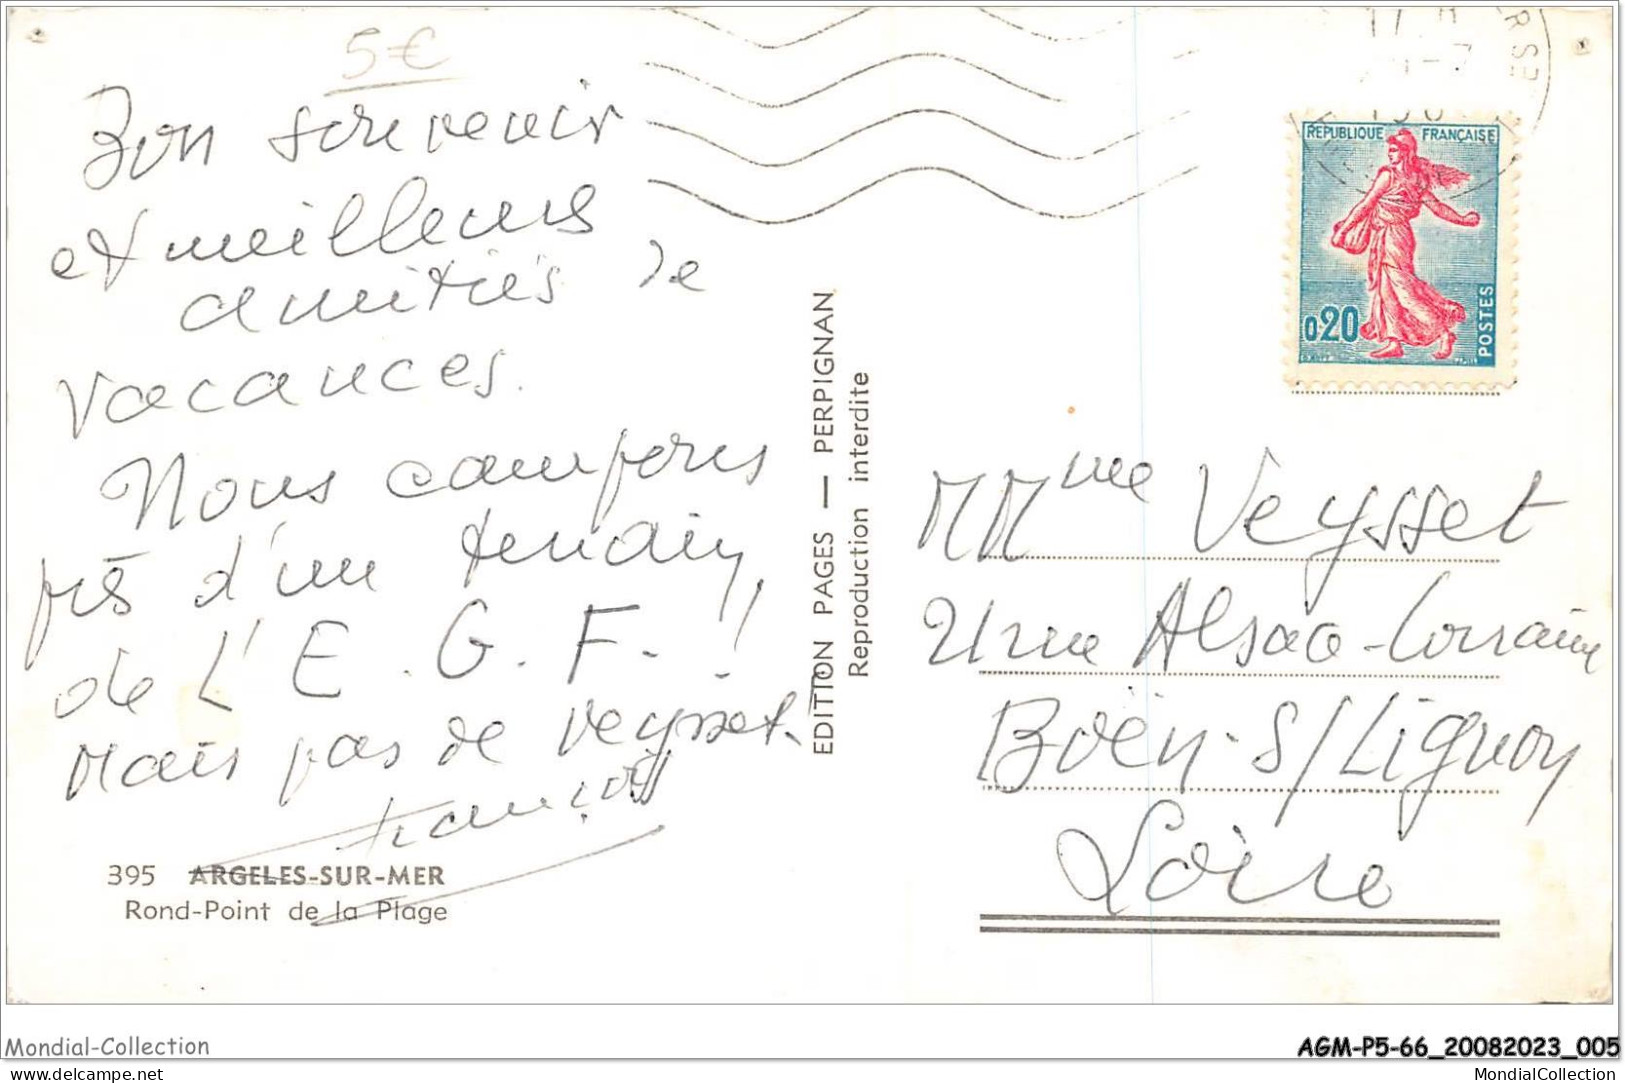 5€
Bon souvenir
et meilleures
amitiés de
vacances.
Nous campons
près d'un terrain
de L'E.G.F.!
Mais pas de Veysset.
François
395 ARGELES-SUR-MER
Rond-Point de la Plage
EDITION PAGES — PERPIGNAN
Reproduction interdite
REPUBLIQUE FRANÇAISE
0,20
POSTES
MMme Veysset
Alsace-Lorraine
Boën-S/Lignon
Loire
Mondial-Collection
AGM-P5-66_20082023_005
delcampe.net
MondialCollection